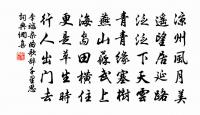 涼州風月美
遙望居延路
泛泛下天雲
青青緣塞樹
燕山蘇武上
海島田橫住
更是草生時
行人出門去
李端雜曲歌辭千里思